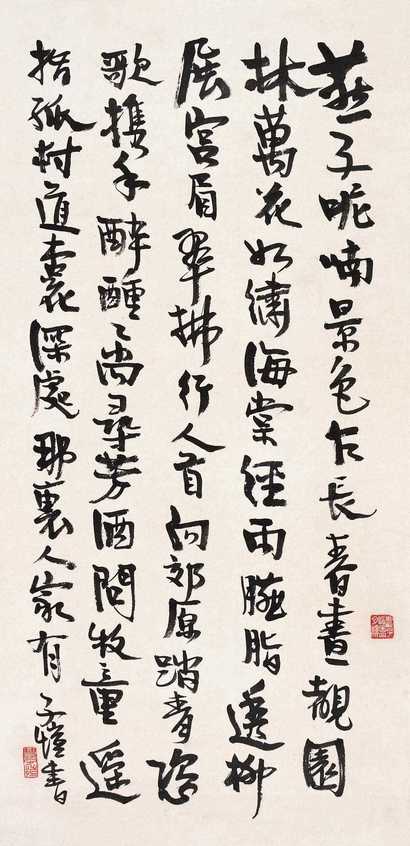 燕子呢喃景色乍長春晝覩園
林萬花如繡海棠經雨臙脂透柳
展宮眉翠拂行人首向郊原踏青恣
歌携手醉醺々尚尋芳酒問牧童遥
指孤村道杏花深處那裏人家有 子愷書